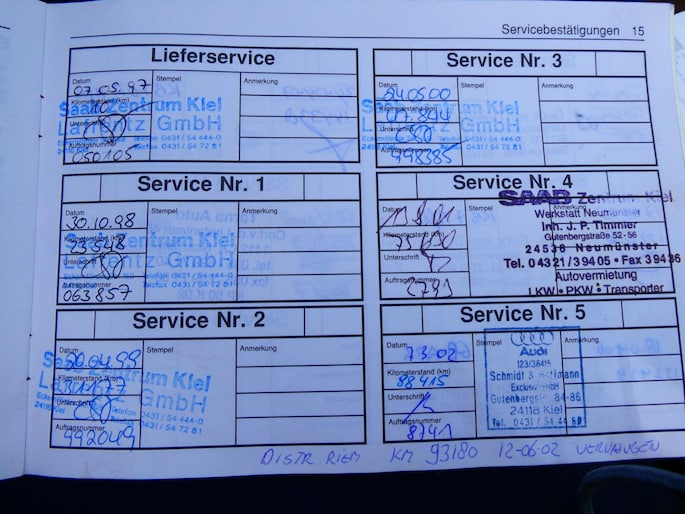 Servicebestätigungen 15
Lieferservice
Datum Stempel Anmerkung
07.05.97
Kilometerstand (km)
10
Saab Zentrum Kiel
Unterschrift
Lafrentz GmbH
Telefon 0431/54 444-0
Telefax 0431/54 72 81
Auftragsnummer
050105
Service Nr. 1
Datum Stempel Anmerkung
30.10.98
Kilometerstand (km)
Saab Zentrum Kiel
Unterschrift
Lafrentz GmbH
Telefon 0431/54 444-0
Telefax 0431/54 72 81
Auftragsnummer
063857
Service Nr. 2
Datum Stempel Anmerkung
20.04.99
Kilometerstand (km)
Saab Zentrum Kiel
Unterschrift
Lafrentz GmbH
24116 Kiel Telefon 0431/54 444-0
Telefax 0431/54 72 81
Auftragsnummer
992049
Service Nr. 3
Datum Stempel Anmerkung
240500
Kilometerstand (km)
Saab Zentrum Kiel
Unterschrift
Lafrentz GmbH
Telefon 0431/54 444-0
Telefax 0431/54 72 81
Auftragsnummer
998385
Service Nr. 4
Datum Stempel Anmerkung
Kilometerstand (km)
Unterschrift
Auftragsnummer
SAAB Zentrum Kiel
Werkstatt Neumünster
Inh. J. P. Timmler
Gutenbergstraße 52-56
24536 Neumünster
Tel. 04321/39405 • Fax 39436
Autovermietung
LKW • PKW • Transporter
Service Nr. 5
Datum Stempel Anmerkung
7.3.02
Kilometerstand (km)
88415
Unterschrift
Auftragsnummer
8141
Audi
123/38415
Schmidt & Hoffmann
Exclusiv GmbH
Gutenbergstr. 84-86
24118 Kiel
DISTR RIEM KM 93180 12-06-02 VERVANGEN